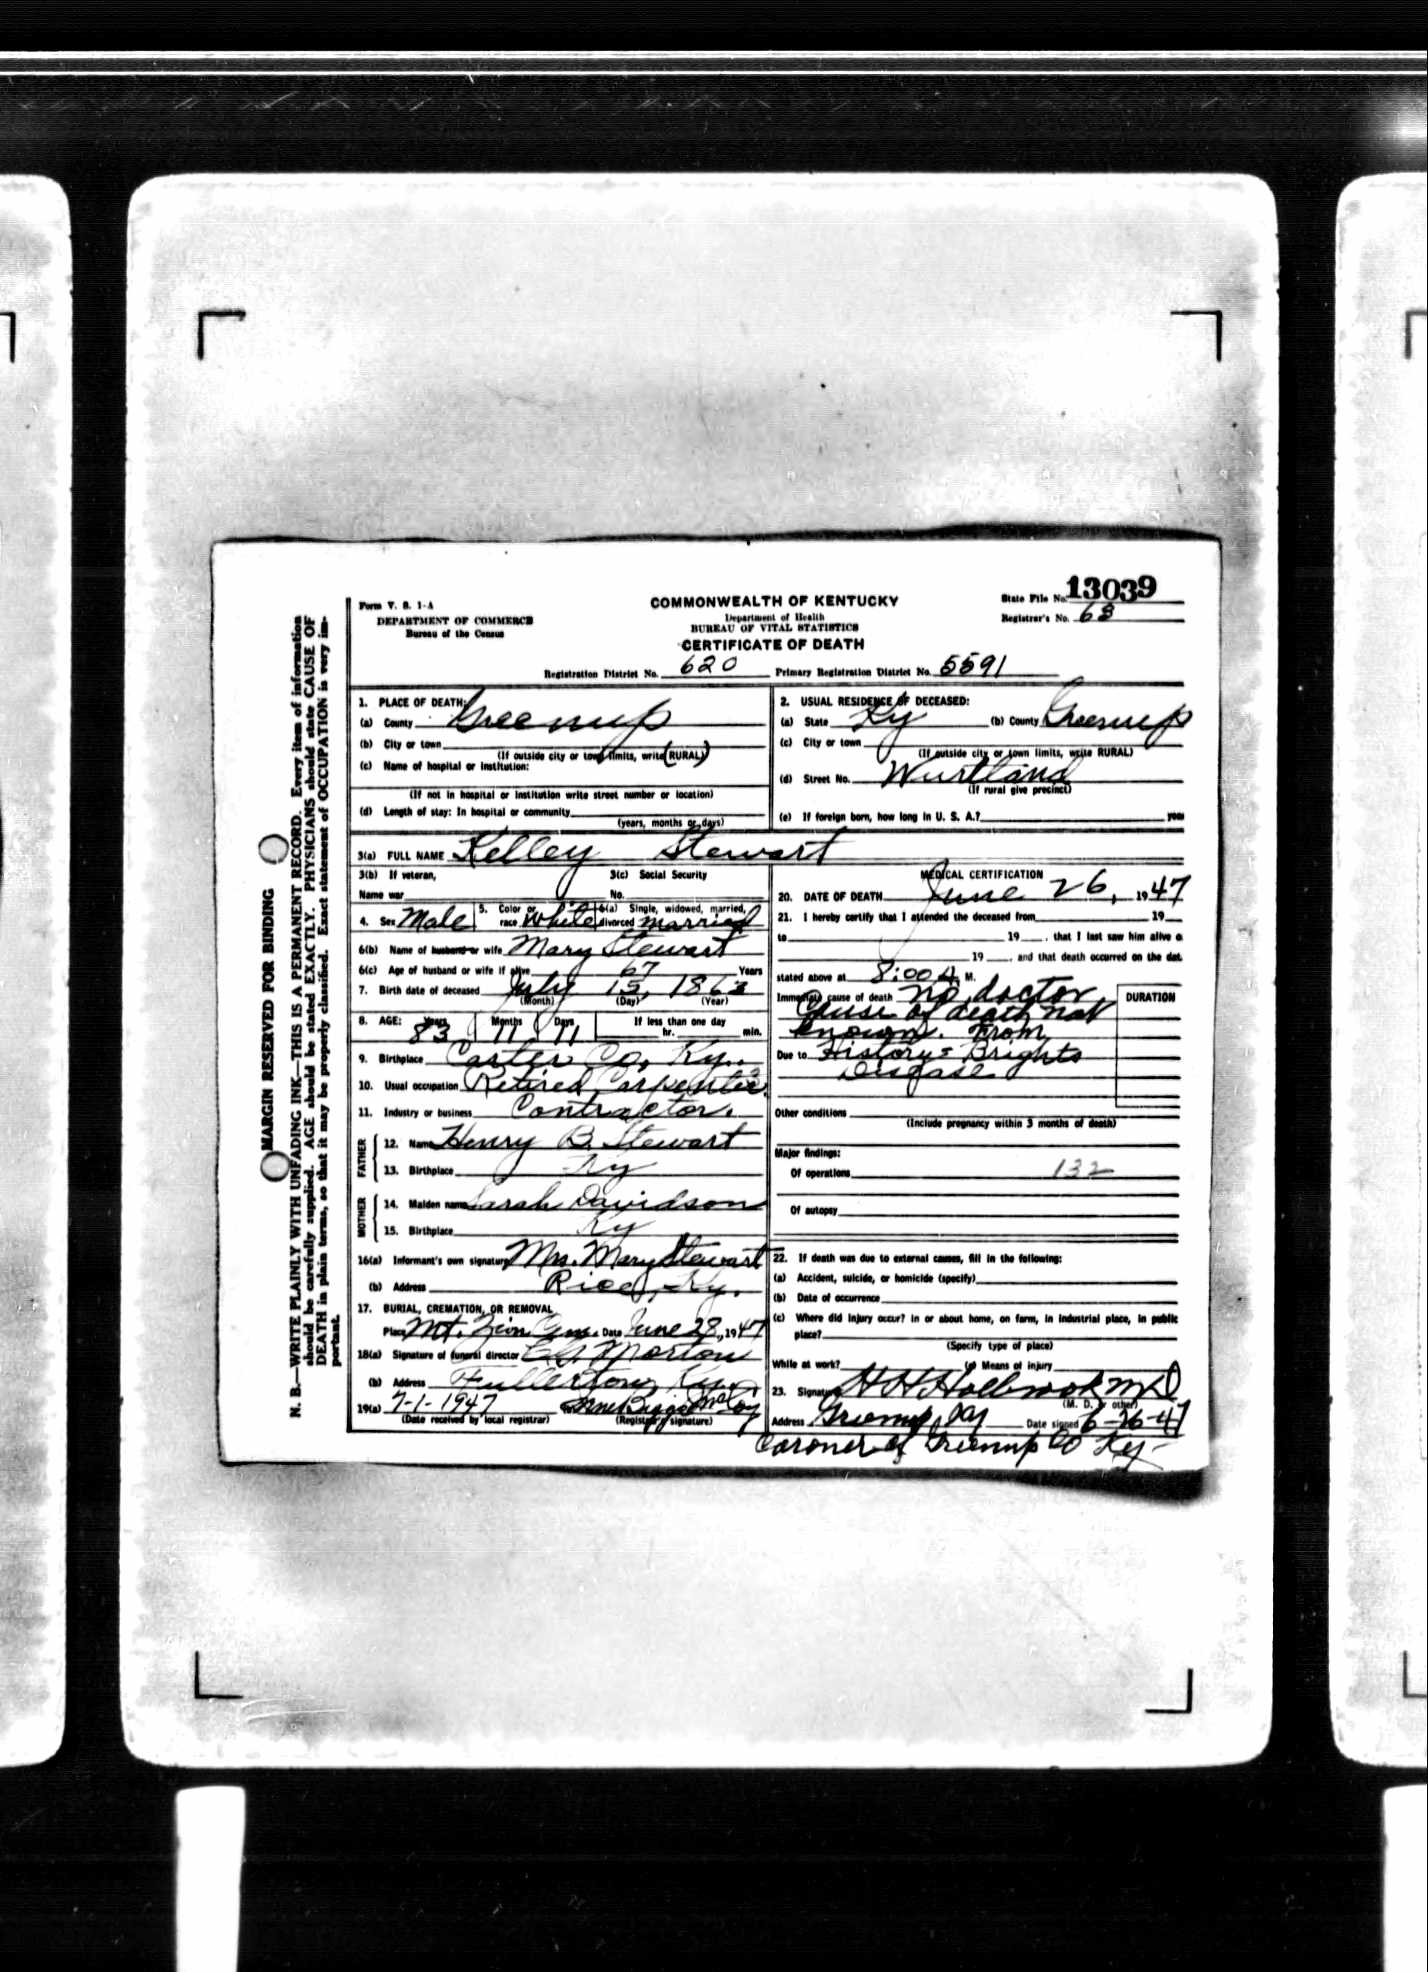 13039
Form V. S. 1-A
COMMONWEALTH OF KENTUCKY
State File No.
DEPARTMENT OF COMMERCE
Department of Health
Registrar's No. 68
Bureau of the Census
BUREAU OF VITAL STATISTICS
CERTIFICATE OF DEATH
Registration District No. 620 Primary Registration District No. 5591
1. PLACE OF DEATH:
(a) County Greenup
(b) City or town
(If outside city or town limits, write (RURAL)
(c) Name of hospital or institution:
(If not in hospital or institution write street number or location)
(d) Length of stay: In hospital or community
(years, months or days)
2. USUAL RESIDENCE OF DECEASED:
(a) State Ky (b) County Greenup
(c) City or town
(If outside city or town limits, write RURAL)
(d) Street No. Wurtland
(If rural give precinct)
(e) If foreign born, how long in U. S. A.? year
3(a) FULL NAME Kelley Stewart
3(b) If veteran, 3(c) Social Security
Name war No.
4. Sex Male 5. Color or race white 6(a) Single, widowed, married, divorced married
6(b) Name of husband or wife Mary Stewart
6(c) Age of husband or wife if alive 67 Years
7. Birth date of deceased July 15, 1863
(Month) (Day) (Year)
8. AGE: Years 83 Months 11 Days 11 If less than one day
hr. min.
9. Birthplace Carter Co, Ky.
10. Usual occupation Retired Carpenter
11. Industry or business Contractor.
FATHER
12. Name Henry B. Stewart
13. Birthplace Ky
MOTHER
14. Maiden name Sarah Davidson
15. Birthplace Ky
16(a) Informant's own signature Mrs. Mary Stewart
(b) Address Rice, Ky.
17. BURIAL, CREMATION, OR REMOVAL
Place Mt. Zion Cem. Date June 28, 1947
18(a) Signature of funeral director C. G. Morton
(b) Address Fullerton, Ky.
19(a) 7-1-1947 McCoy
(Date received by local registrar) (Registrar's signature)
MEDICAL CERTIFICATION
20. DATE OF DEATH June 26, 1947
21. I hereby certify that I attended the deceased from 19
to 19 , that I last saw him alive o
19 , and that death occurred on the dat
stated above at 8:00 A. M.
Immediate cause of death no doctor
DURATION
Cause of death not
known. From
Due to History: Brights
Disease
Other conditions
(Include pregnancy within 3 months of death)
Major findings:
Of operations 132
Of autopsy
22. If death was due to external causes, fill in the following:
(a) Accident, suicide, or homicide (specify)
(b) Date of occurrence
(c) Where did injury occur? In or about home, on farm, in industrial place, in public
place?
(Specify type of place)
While at work? (e) Means of injury
23. Signature H H Holbrook MD
(M. D. or other)
Address Greenup, Ky Date signed 6-26-47
Coroner of Greenup Co Ky-
MARGIN RESERVED FOR BINDING
N. B.—WRITE PLAINLY WITH UNFADING INK—THIS IS A PERMANENT RECORD. Every item of information
should be carefully supplied. AGE should be stated EXACTLY. PHYSICIANS should state CAUSE OF
DEATH in plain terms, so that it may be properly classified. Exact statement of OCCUPATION is very im-
portant.